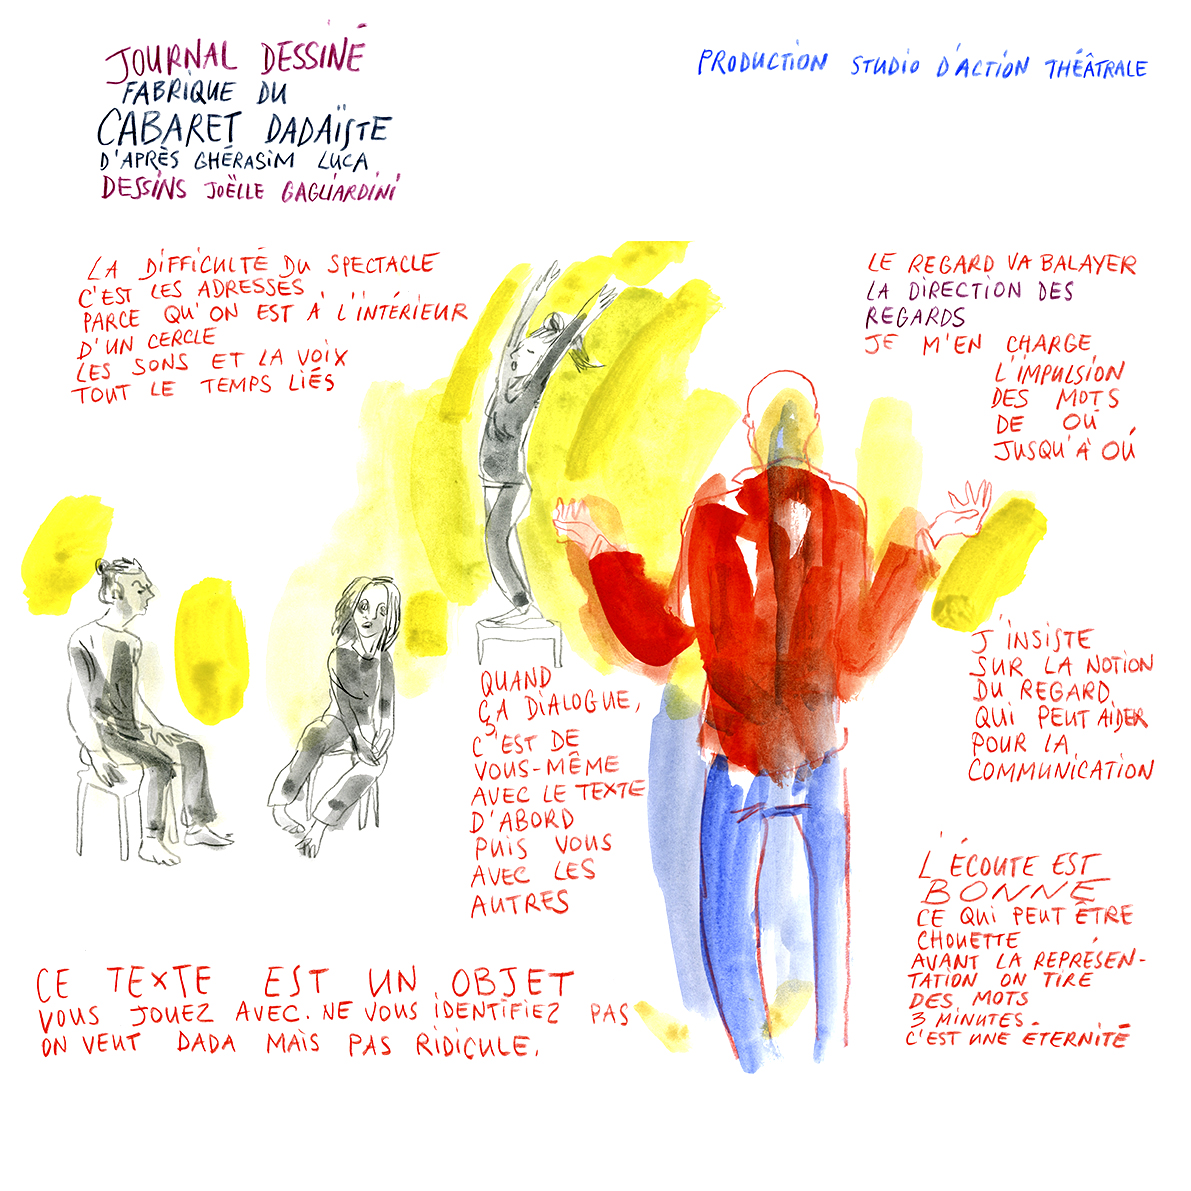 JOURNAL DESSINÉ
FABRIQUE DU
CABARET DADAÏSTE
D'APRÈS GHÉRASIM LUCA
DESSINS JOËLLE GAGLIARDINI
PRODUCTION STUDIO D'ACTION THÉÂTRALE
LA DIFFICULTÉ DU SPECTACLE
C'EST LES ADRESSES
PARCE QU'ON EST À L'INTÉRIEUR
D'UN CERCLE
LES SONS ET LA VOIX
TOUT LE TEMPS LIÉS
LE REGARD VA BALAYER
LA DIRECTION DES
REGARDS
JE M'EN CHARGE
L'IMPULSION
DES MOTS
DE OÚ
JUSQU'À OÚ
J'INSISTE
SUR LA NOTION
DU REGARD
QUI PEUT AIDER
POUR LA
COMMUNICATION
QUAND
ÇA DIALOGUE,
C'EST DE
VOUS-MÊME
AVEC LE TEXTE
D'ABORD
PUIS VOUS
AVEC LES
AUTRES
L'ÉCOUTE EST
BONNE
CE QUI PEUT ÊTRE
CHOUETTE
AVANT LA REPRÉSEN-
TATION ON TIRE
DES MOTS
3 MINUTES
C'EST UNE ÉTERNITÉ
CE TEXTE EST UN OBJET
VOUS JOUEZ AVEC. NE VOUS IDENTIFIEZ PAS
ON VEUT DADA MAIS PAS RIDICULE.